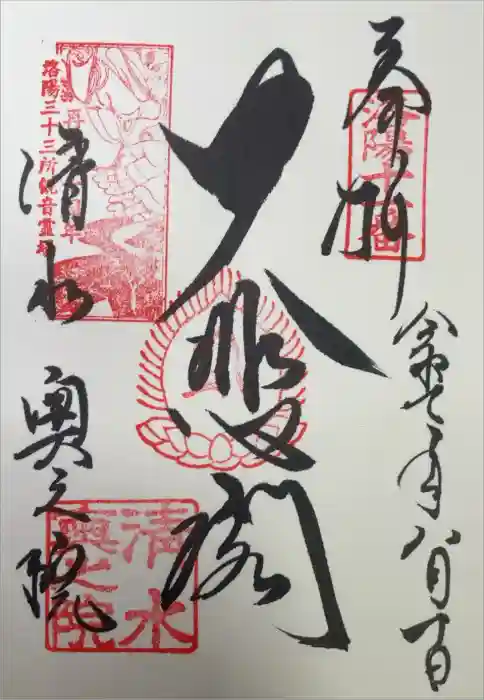 奉拝
洛陽十一番
令和七年八月一日
大悲閣
洛陽三十三所観音霊場
清水
奥之院
清水
奥之院